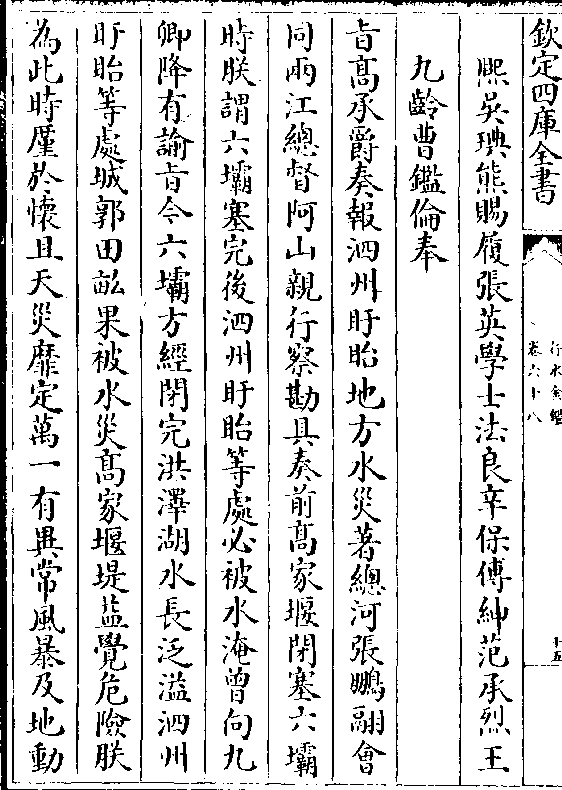 欽定四庫全書
行水金鑑
卷六十八
十五
熙吳琠熊賜履張英學士法良辛保傅紳范承烈王
九齡曹鑑倫奉
旨高承爵奏報泗州盱眙地方水災著總河張鵬翮會
同兩江總督阿山親行察勘具奏前高家堰閉塞六壩
時朕謂六壩塞完後泗州盱眙等處必被水淹曾向九
卿降有諭旨今六壩方經閉完洪澤湖水長泛溢泗州
盱眙等處城郭田畝果被水災高家堰堤葢覺危險朕
為此時厪於懷且天災靡定萬一有異常風暴及地動